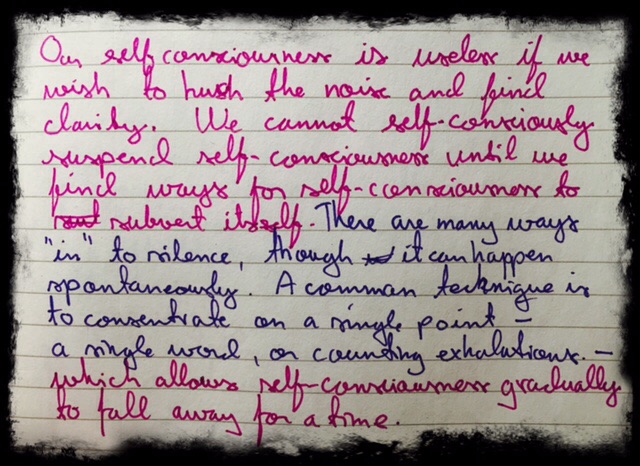 Our self consciousness is useless if we
wish to hush the noise and find
clarity. We cannot self-consciously
suspend self-consciousness until we
find ways for self-consciousness to
subvert itself. There are many ways
"in" to silence, though it can happen
spontaneously. A common technique is
to consentrate on a single point –
a single word, or counting exhalations. –
which allows self-consciousness gradually
to fall away for a time.